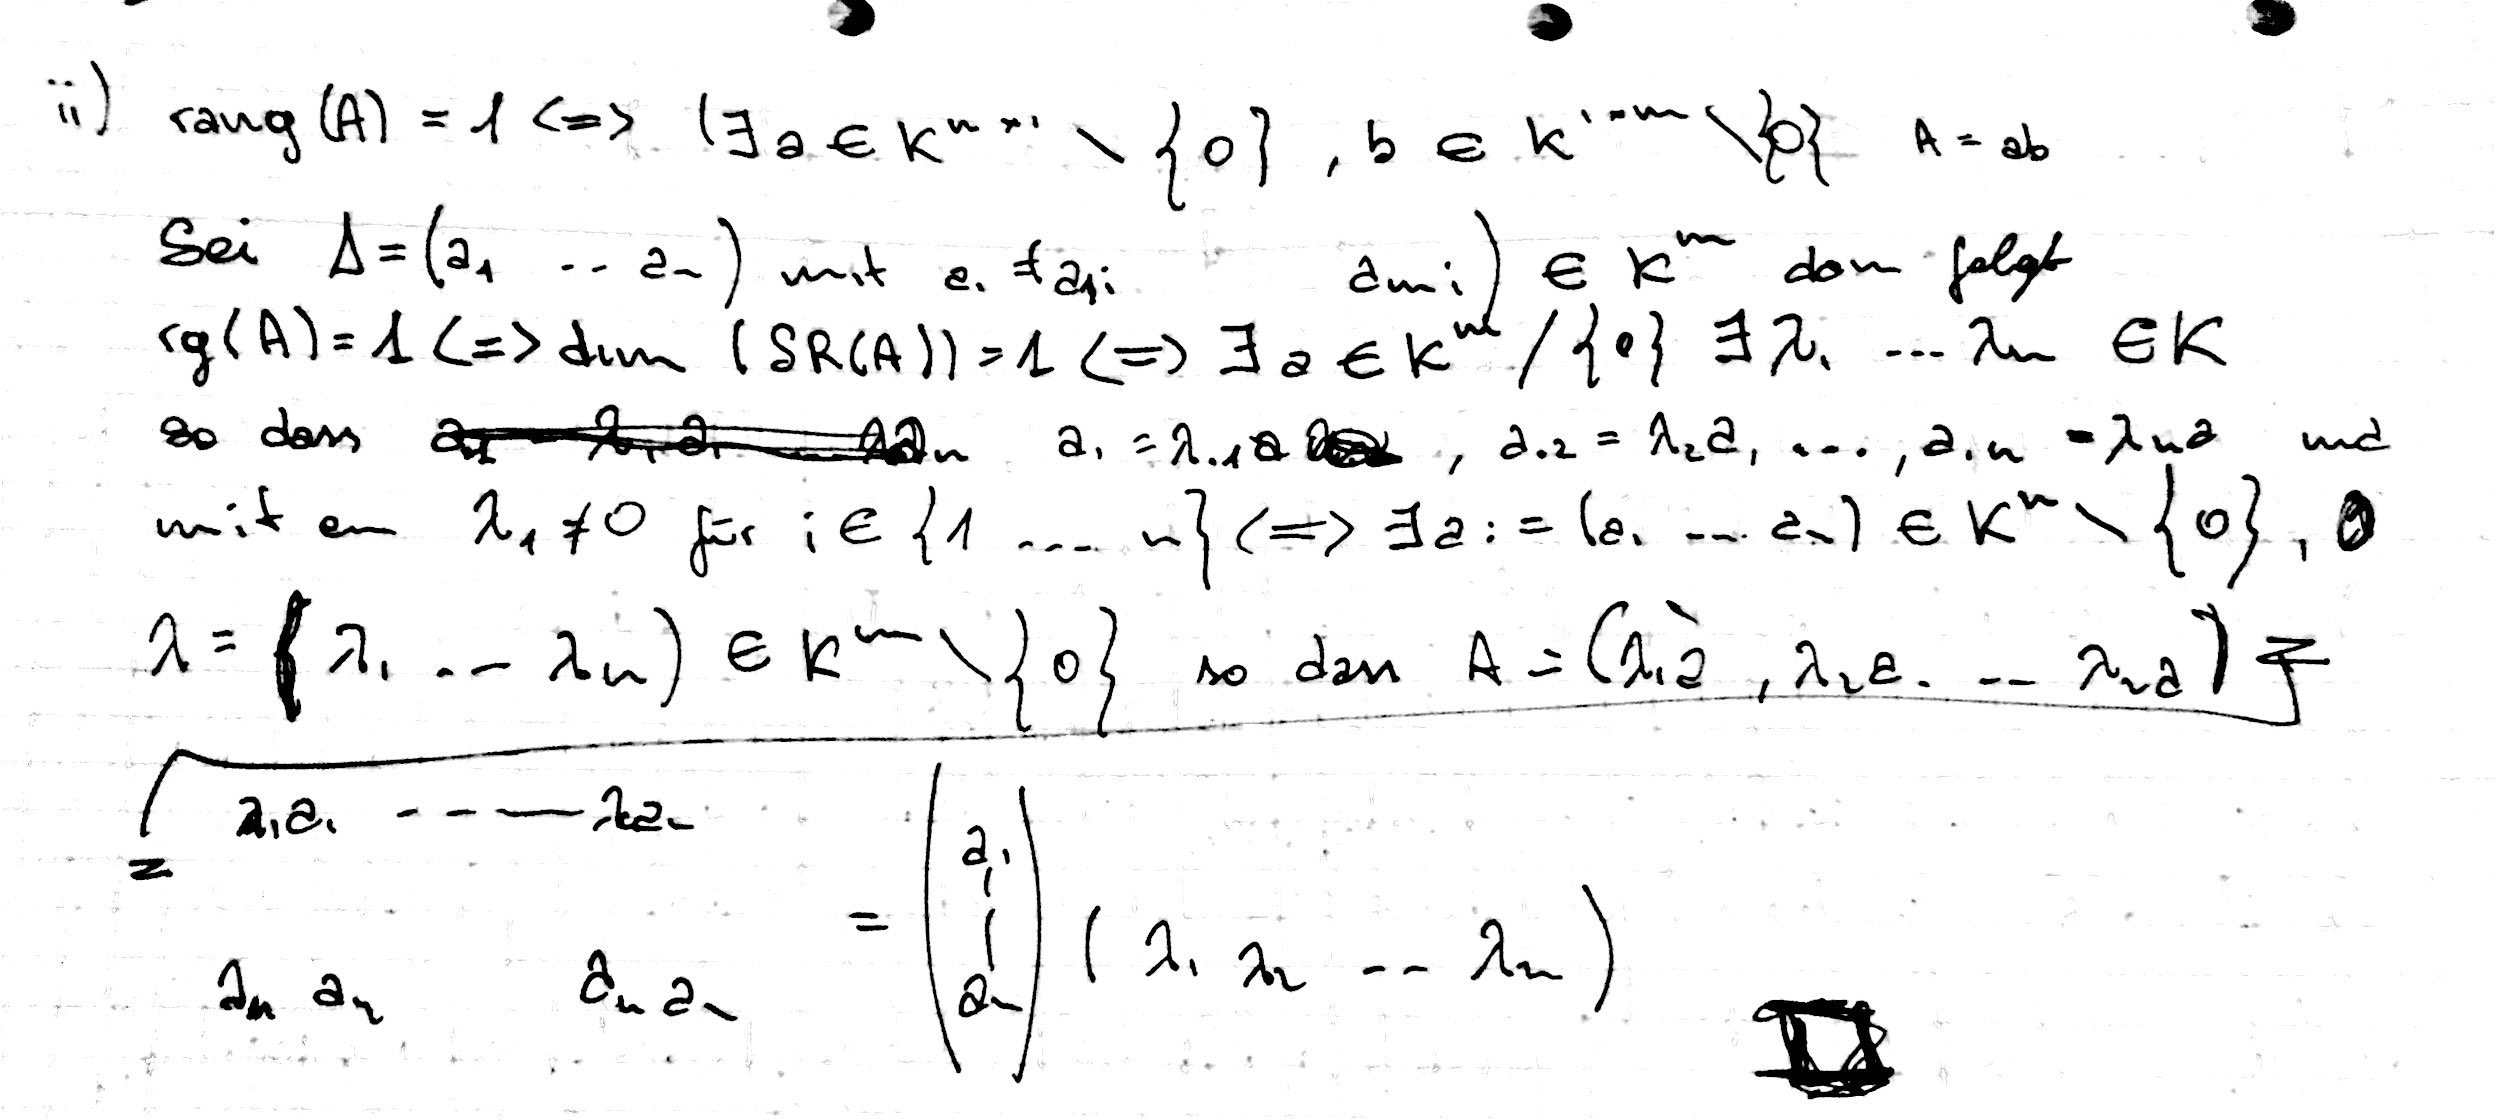 ii) rang (A) = 1 <=> (∃ a ∈ K^{n×1} \ {0}, b ∈ K^{1×m} \ {0} A = ab
Sei A = (a₁ .. aₙ) mit aᵢ = (a₁ᵢ aₘᵢ) ∈ K^m dann folgt
rg(A) = 1 <=> dim (SR(A)) = 1 <=> ∃ a ∈ K^m / {0} ∃ λ₁ ... λₙ ∈ K
so dass a₁ = λ₁a, a₂ = λ₂a, ..., aₙ = λₙa und
mit en λ₁ ≠ 0 für i ∈ {1 .... n} <=> ∃ a := (a₁ ... aₙ) ∈ K^n \ {0},
λ = (λ₁ ... λₙ) ∈ K^m \ {0} so dass A = (λ₁a, λ₂a ... λₙa) =
= λ₁a₁ ---- λaₙ
λₙ aₙ λₙ aₙ
= (a₁ | aₙ) (λ₁ λ₂ -- λₙ)